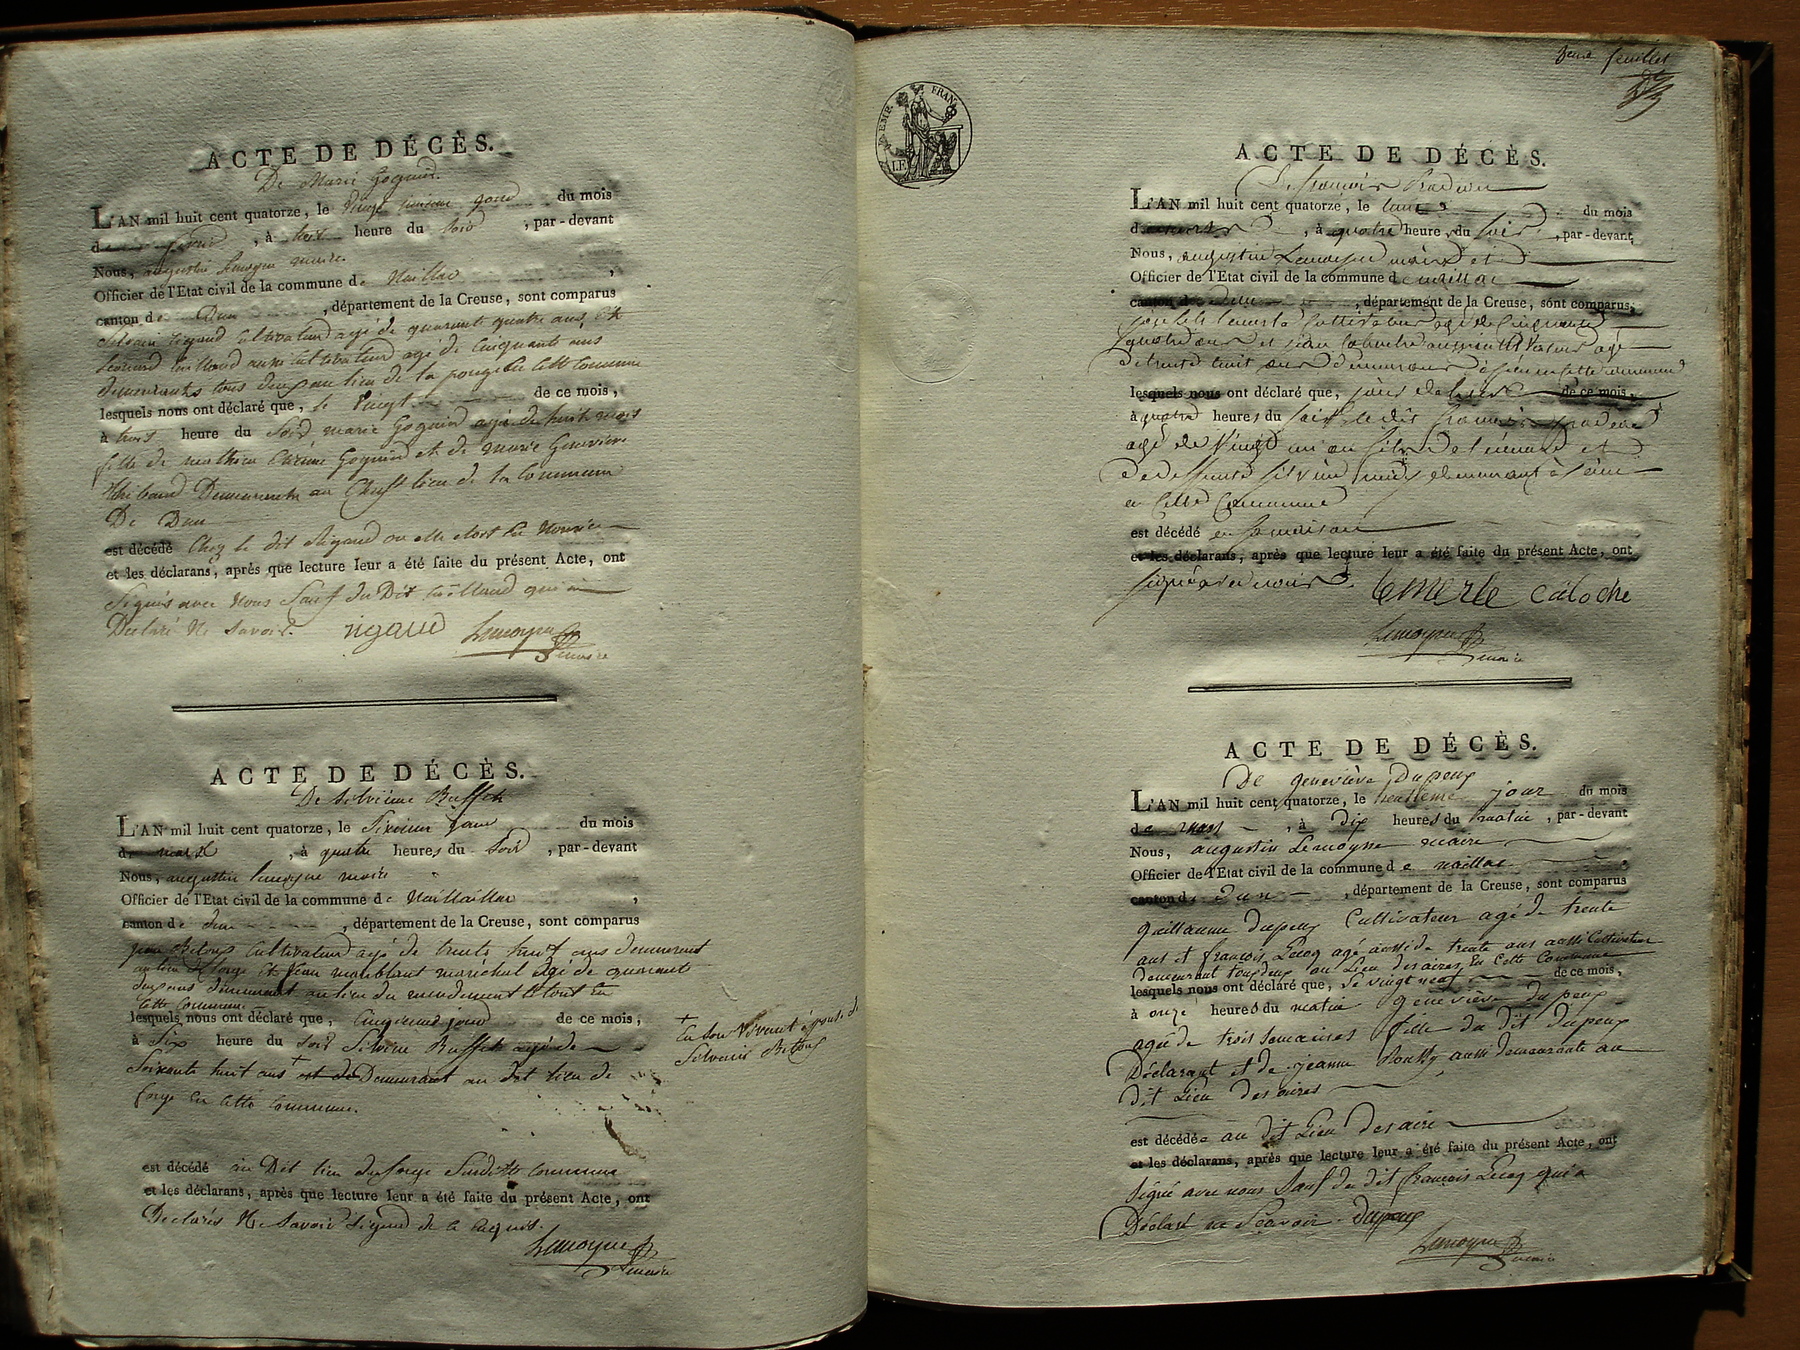 ACTE DE DÉCÈS.
De Marie Goguin.
L'AN mil huit cent quatorze, le Vingt jour du mois
de, à huit heure du Soir, par-devant
Nous, augustin Lemoyne maire
Officier de l'Etat civil de la commune de Naillac,
canton de Dun, département de la Creuse, sont comparus
Silvain rigaud Cultivateur agé de quarante quatre ans, Et
Léonard taillaud aussi Cultivateur agé de Cinquante ans
demeurants tous deux au lieu de la En Cette Commune
lesquels nous ont déclaré que, le Vingt de ce mois,
à trois heure du Soir marie Goguin agée de huit mois
fille de mathieu Goguin et de marie Geneviève
thibaud Demeurants au Cheflieu de la Commune
De Dun
est décédé Chez le dit Rigaud ou elle étoit En Nourice
et les déclarans, après que lecture leur a été faite du présent Acte, ont
Signés avec Nous Sauf du Dit taillaud qui a
Declaré Ne Savoir. rigaud Lemoyne
maire
ACTE DE DÉCÈS.
De Silviene Buffet
L'AN mil huit cent quatorze, le Sixieme jour du mois
de mars, à quatre heures du Soir, par-devant
Nous, augustin lemoyne maire
Officier de l'Etat civil de la commune de,
canton de dun, département de la Creuse, sont comparus
Cultivateur agé de trente huit ans demeurant
au lieu de forge Et Jean maublant maréchal agé de quarante
deux ans demeurant au lieu du mendement le tout En
Cette Commune
lesquels nous ont déclaré que, Cinquieme jour de ce mois,
à Six heure du Soir Silviene Buffet agé de
Soixante huit ans + Demeurant au dit lieu de
forge En Cette Commune.
+
En Son Vivant épouse de
Silvain
est décédé au Dit lieu de forge Susditte Commune
et les déclarans, après que lecture leur a été faite du présent Acte, ont
Declarés Ne Savoir Signer de ce Enquis.
Lemoyne
maire
3eme feuillet
ACTE DE DÉCÈS.
De françois Pradeau
L'AN mil huit cent quatorze, le du mois
de, à quatre heures du Soir, par-devant
Nous, augustin Lemoyne maire et
Officier de l'Etat civil de la commune de naillac
canton de Dun, département de la Creuse, sont comparus,
Cultivateur agé de Cinquante
quatre ans et jean Caloche aussi Cultivateur agé
de trente huit ans demeurans à En Cette Commune
lesquels nous ont déclaré que, de ce mois,
à quatre heures du Soir le dit françois Pradeau
agé de Vingt un an fils de léonard et
de deffunte demeurant à
en Cette Commune
est décédé en sa maison
et les déclarans, après que lecture leur a été faite du présent Acte, ont
signé avec nous. lemerle caloche
Lemoyne
maire
ACTE DE DÉCÈS.
De geneviève Dupeux
L'AN mil huit cent quatorze, le trentieme jour du mois
de mars, à dix heures du matin, par-devant
Nous, augustin Lemoyne maire
Officier de l'Etat civil de la commune de naillac
canton de Dun, département de la Creuse, sont comparus
guillaume dupeux Cultivateur agé de trente
ans et françois Lecoq agé aussi de trente ans aussi Cultivateur
demeurant tous deux au Lieu des aires En Cette Commune
lesquels nous ont déclaré que, le vingt neuf de ce mois,
à onze heures du matin geneviève du peux
agée de trois Semaines fille du dit dupeux
Déclarant et de jeanne aussi demeurante au
dit Lieu des aires
est décédée au dit Lieu des aires
et les déclarans, après que lecture leur a été faite du présent Acte, ont
Signé avec nous Sauf du dit françois Lecoq qui a
Déclaré ne Scavoir. Dupeux
Lemoyne
maire